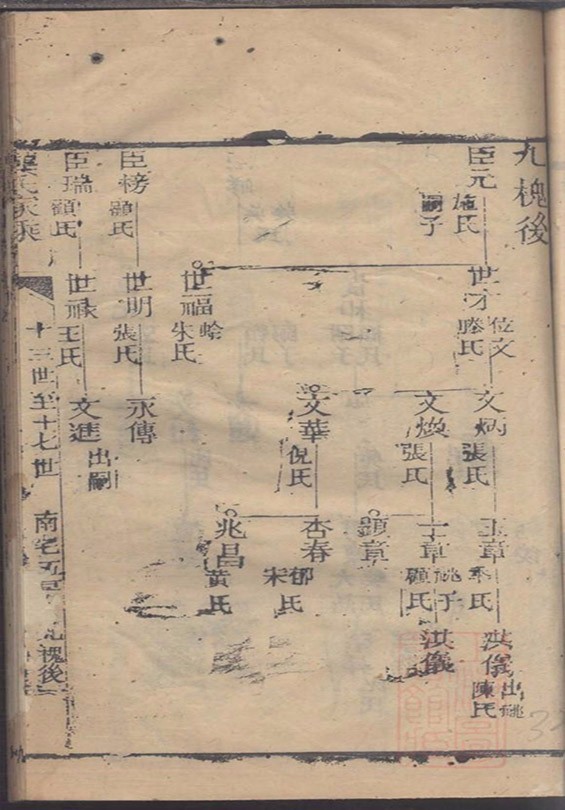 九槐後
臣元 施氏 嗣子
臣榜 顧氏
臣瑞 顧氏
世才 位文 滕氏
世福 蛤 朱氏
世明 張氏
世祿 王氏
文炳 張氏
文煥 張氏
文華 倪氏
永傳
文進 出嗣
玉章 季氏
士章 祧子 顧氏
顯章
杏春 郁氏 宋氏
兆昌 黃氏
洪儀 出祧 陳氏
洪儀
氏家乘
十三世至十七世
南宅五房
九槐後